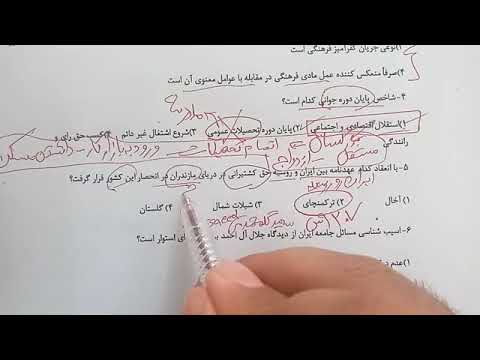 ۱) نوعی جریان کفرآمیز فرهنگی است
۴) صرفاً منعکس کننده عمل مادی فرهنگی در مقابله با عوامل معنوی آن است
۴- شاخص پایان دوره جوانی کدام است؟
۱) استقلال اقتصادی و اجتماعی ۲) پایان دوره تحصیلات عمومی ۳) شروع اشتغال غیر دائم ۴) کسب حق رای و
رانندگی
مستقل ازدواج اتمام تحصیلات ورود به بازار کار داشتن مسکن
۵- با انعقاد کدام عهدنامه بین ایران و روسیه حق کشتیرانی در دریای مازندران در انحصار این کشور قرار گرفت؟
ایران و روسیه
۱) آخال ۲) ترکمنچای ۳) شیلات شمال ۴) گلستان
saeed
۶- آسیب شناسی مسائل جامعه ایران از دیدگاه جلال آل احمد استوار است؟
۱) عدم